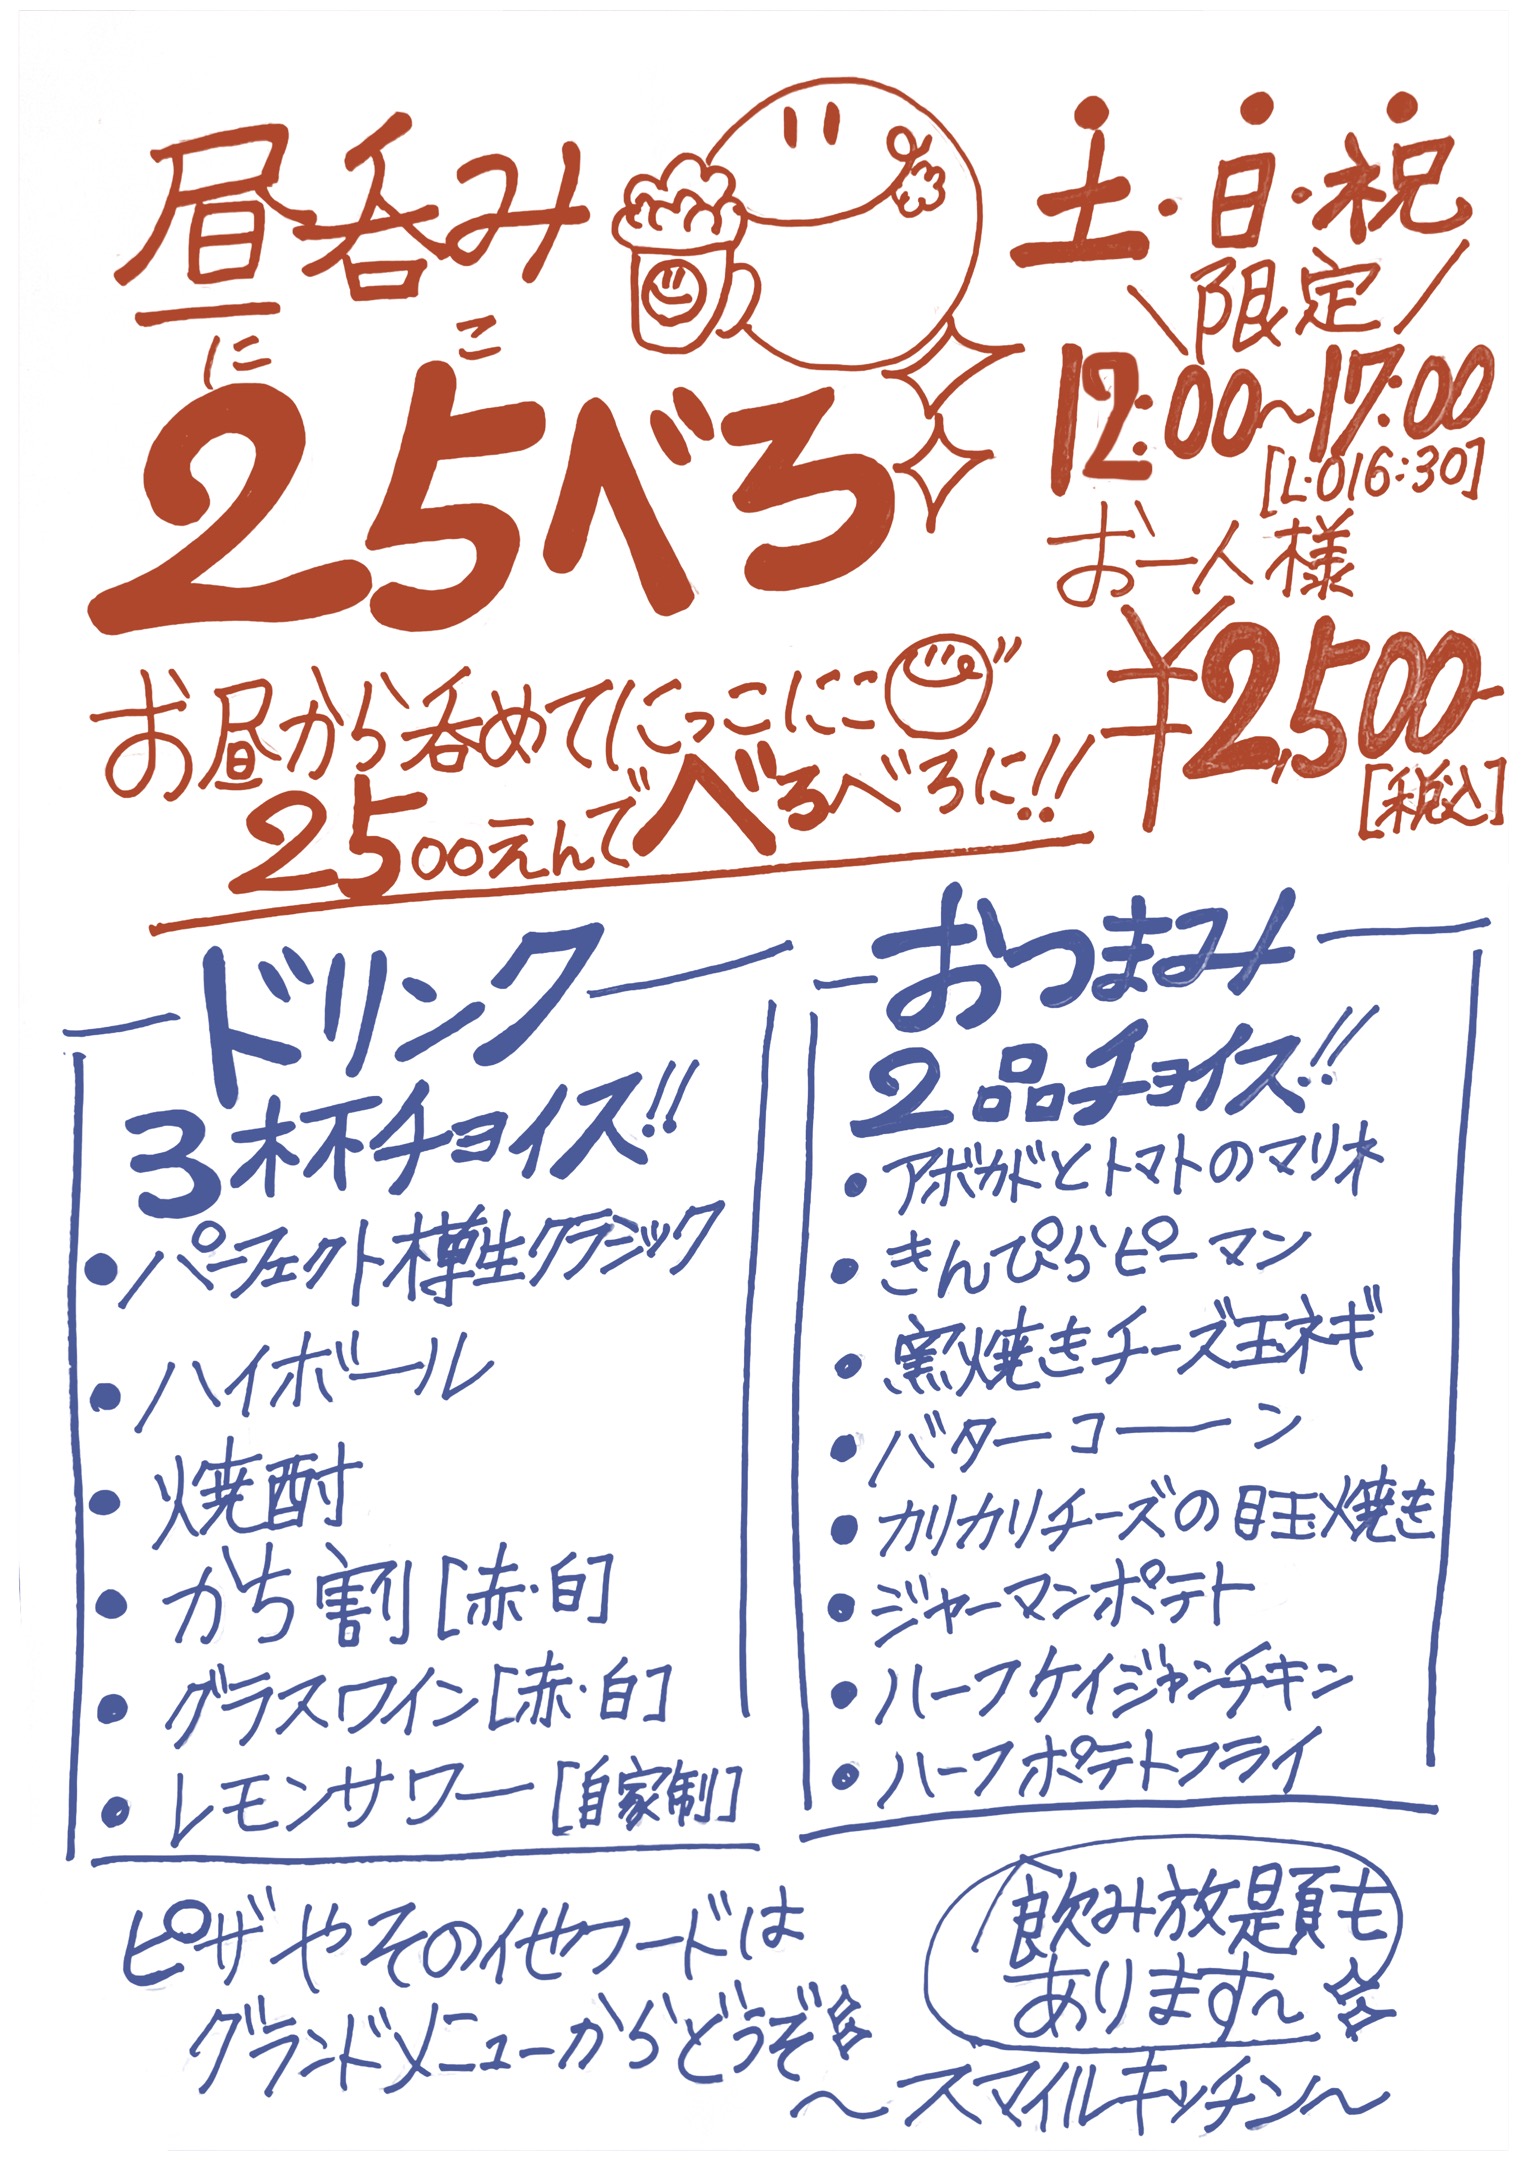 昼呑み
にこ
25べろ
土・日・祝
限定
12:00〜17:00
[L.O16:30]
お一人様
¥2,500-
[税込]
お昼から呑めてにっこにこ
2500えんでべろべろに!!
ドリンク
3杯チョイス!!
・パーフェクト樽生クラシック
・ハイボール
・焼酎
・かち割[赤・白]
・グラスワイン[赤・白]
・レモンサワー[自家制]
おつまみ
2品チョイス!!
・アボカドとトマトのマリネ
・きんぴらピーマン
・窯焼きチーズ玉ネギ
・バターコーーン
・カリカリチーズの目玉焼き
・ジャーマンポテト
・ハーフケイジャンチキン
・ハーフポテトフライ
ピザやその他フードは
グランドメニューからどうぞ
飲み放題も
あります〜
〜スマイルキッチン〜